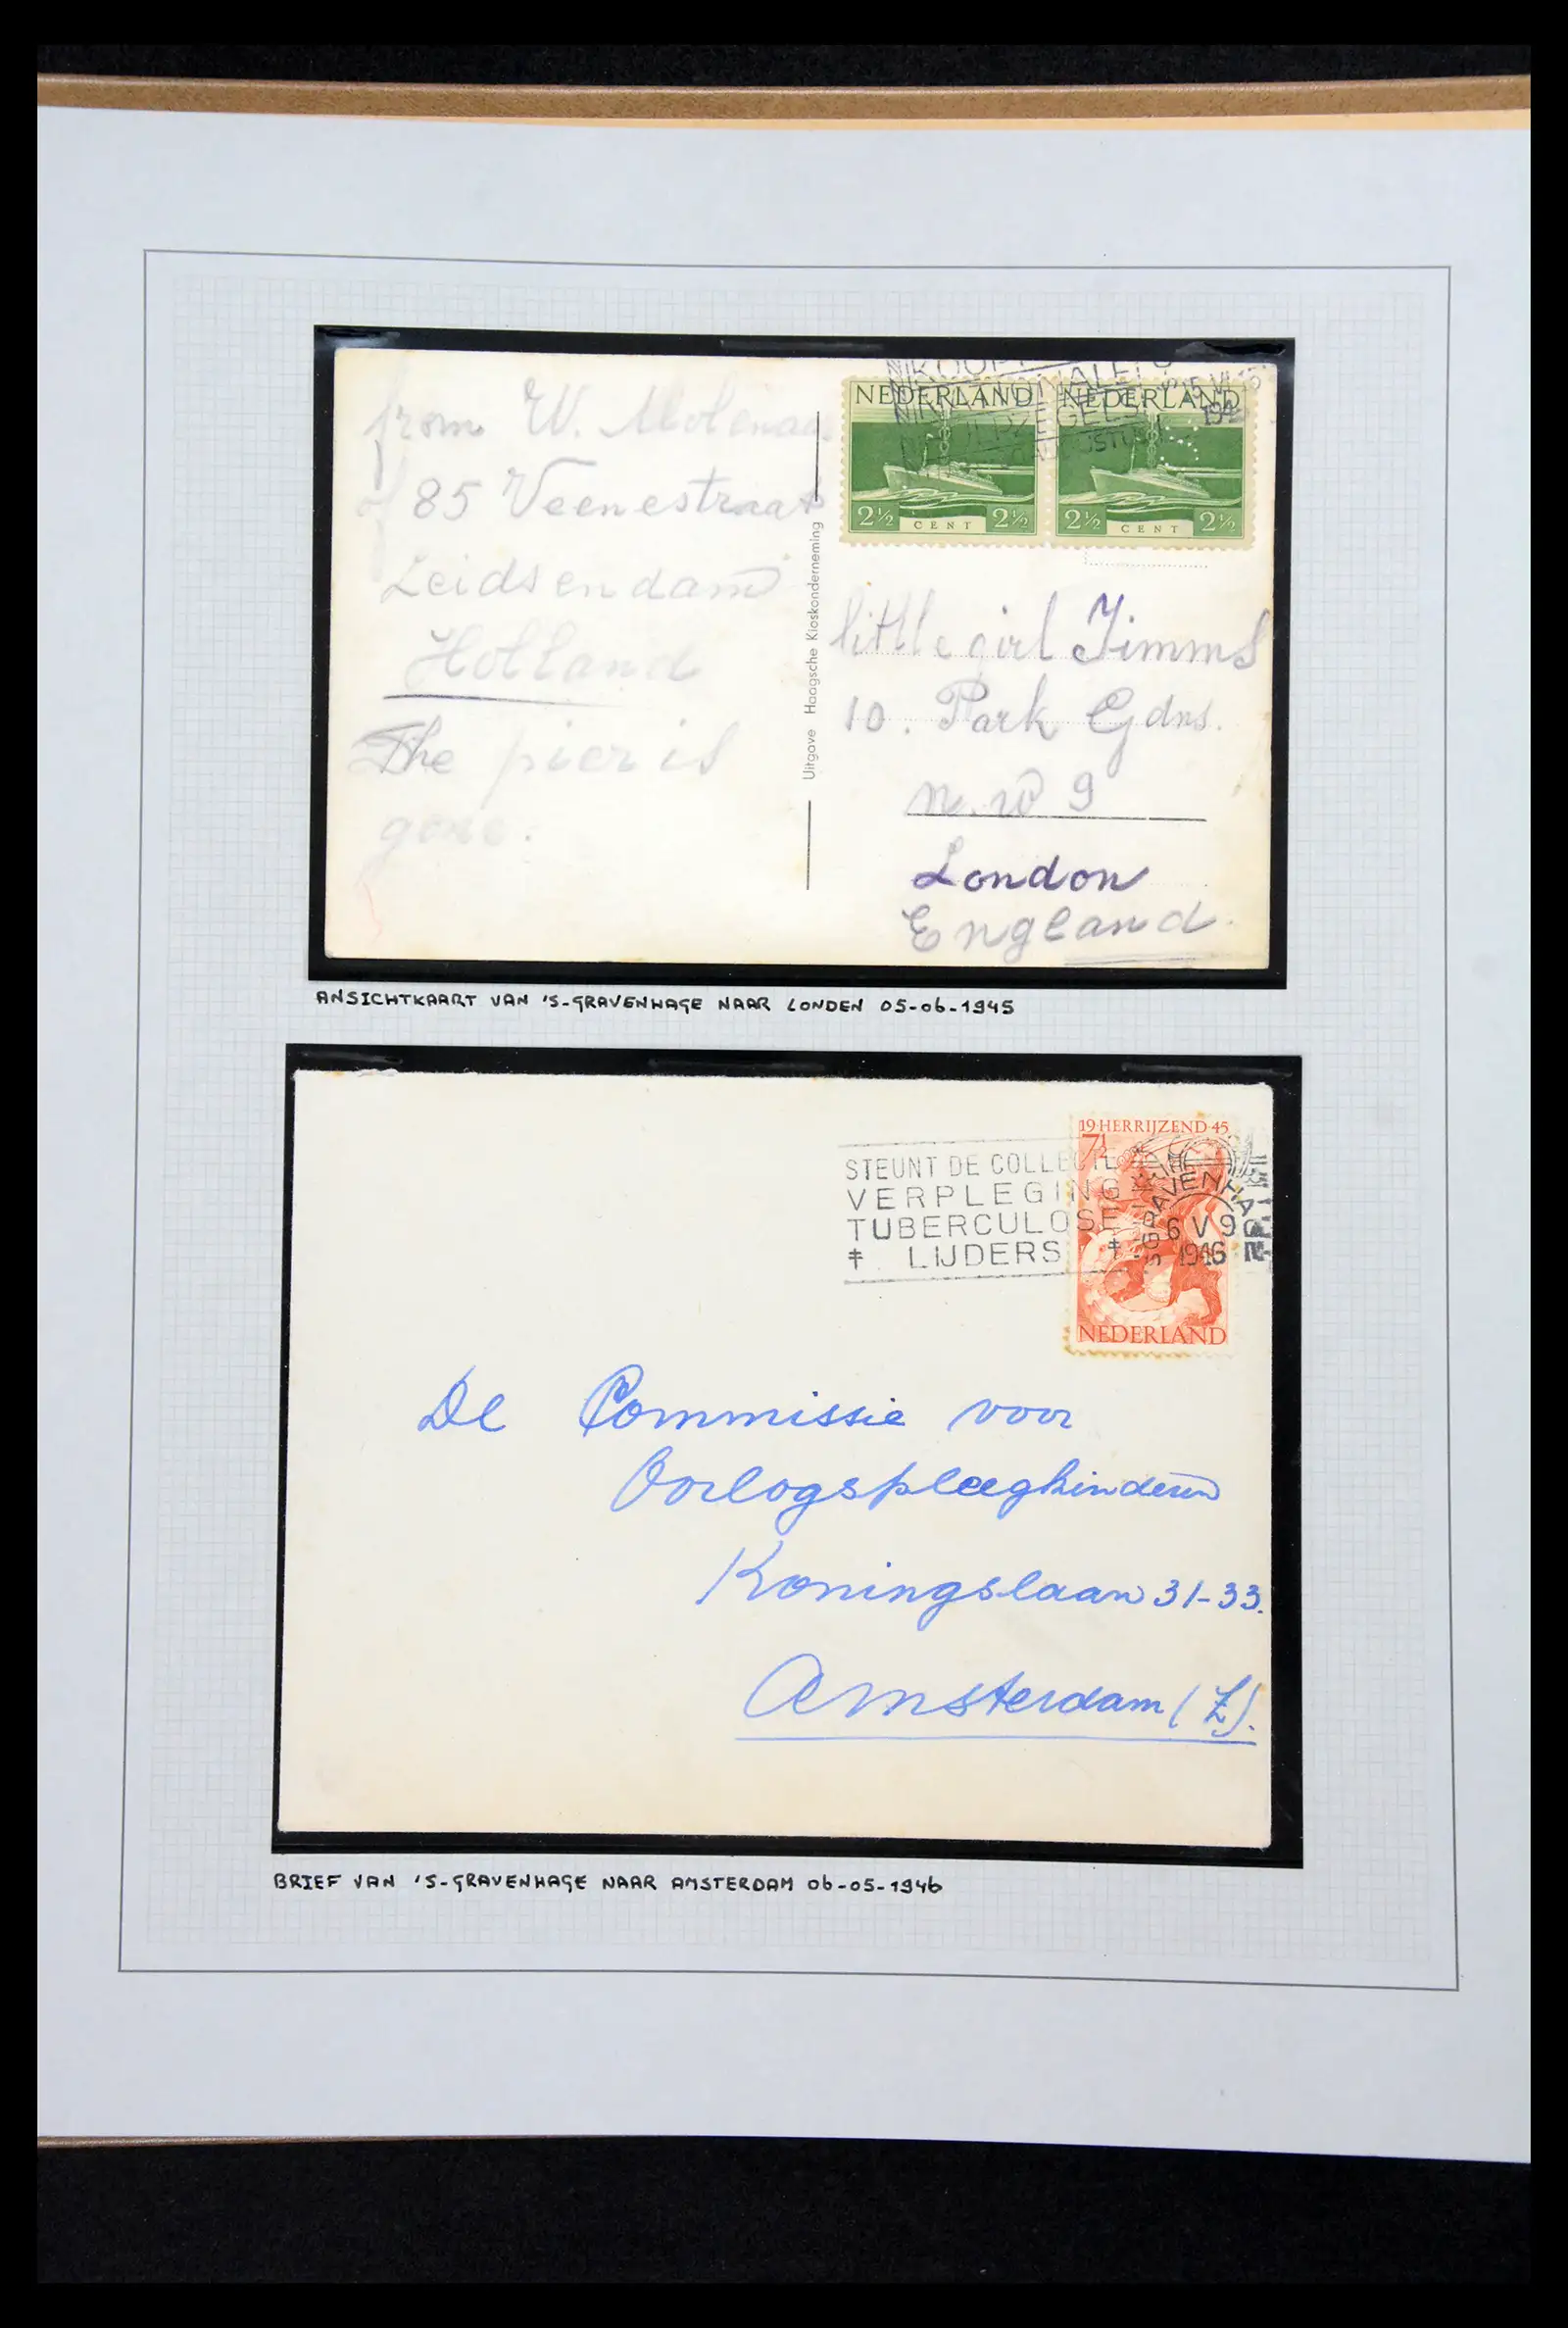 from W. Molenaar
85 Veenestraat
Leidsendam
Holland
The pier is
gone.
Uitgave Haagsche Kioskonderneming
NEDERLAND NEDERLAND
2½ CENT 2½ 2½ CENT 2½
little girl Timms
10. Park Gdns.
n.w 9
London
England.
ANSICHTKAART VAN 'S-GRAVENHAGE NAAR LONDEN 05-06-1945
19 HERRIJZEND 45
7½
NEDERLAND
STEUNT DE COLLECTE
VERPLEGING
TUBERCULOSE
‡ LIJDERS ‡
6 V 9
1946
De Commissie voor
Oorlogspleegkinderen
Koningslaan 31-33.
Amsterdam (Z).
BRIEF VAN 'S-GRAVENHAGE NAAR AMSTERDAM 06-05-1946